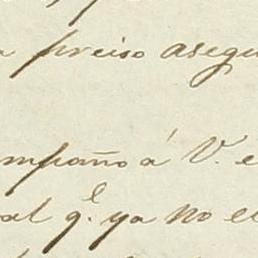 preciso asegu
ompaño á V. e
al q.e ya no el